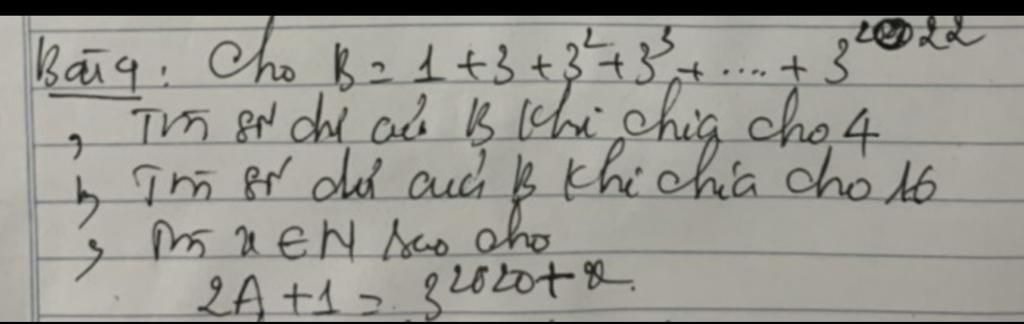 Bài 9: Cho B = 1 + 3 + 3² + 3³ + .... + 3²⁰²²
, Tìm số dư của B khi chia cho 4
b, Tìm số dư của B khi chia cho 16
, Tìm x ∈ N sao cho
2A + 1 = 3²⁰²⁰⁺ˣ.